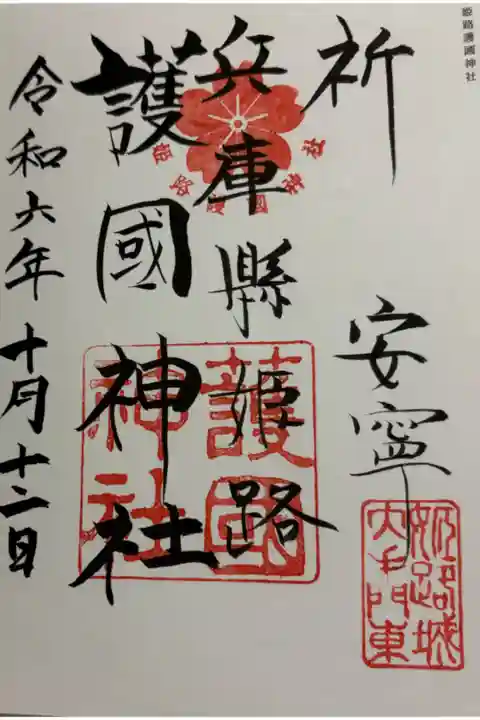 姫路護國神社
祈 安寧
兵庫縣姫路
護國神社
令和六年十月十二日
護國
神社
姫路城
大手門東